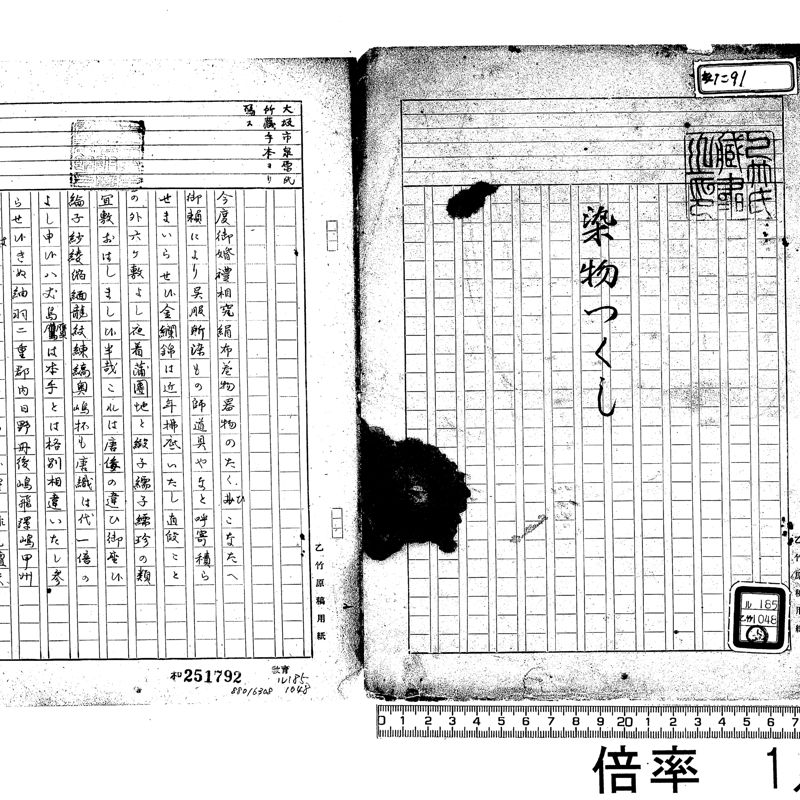 染物つくし
ル 185
乙竹 1048
乙竹原稿用紙
大坂市泉原氏
竹蔵手本ヨリ
写ス
今度御婚禮相究絹布巻物器物のたくみひこなたへ
御頼により呉服所染もの師道具やなと呼寄積ら
せまいらせ候金襴錦は近年掃底いたし直段こと
の外六ヶ敷よし夜着蒲團地と緞子繻子繻珍の類
宜敷おはしまし候半哉これは唐倭の違ひ御座候
綸子紗綾縮緬龍紋練縞奥嶋杯も唐織は代一倍の
よし申候八丈島は本手とは格別相違いたし参
らせ候きぬ紬羽二重郡内日野丹後嶋飛澤嶋甲州
乙竹原稿用紙
和251792
教育
ル185
1048
88016308
0 1 2 3 4 5 6 7 8 9 20 1 2 3 4 5 6 7
倍率 1